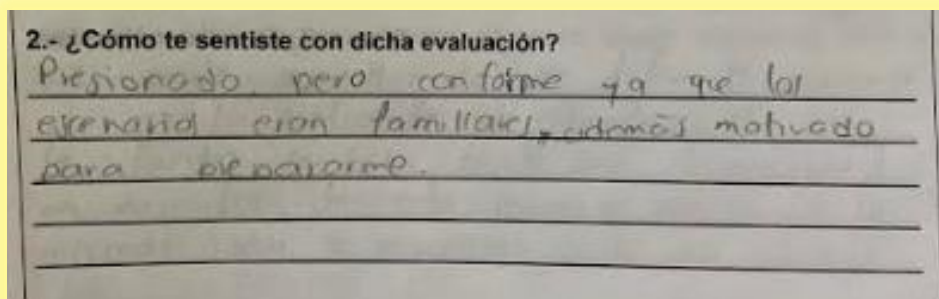 2.- ¿Cómo te sentiste con dicha evaluación?
Presionado pero conforme ya que los
escenarios eran familiares, además motivado
para prepararme.